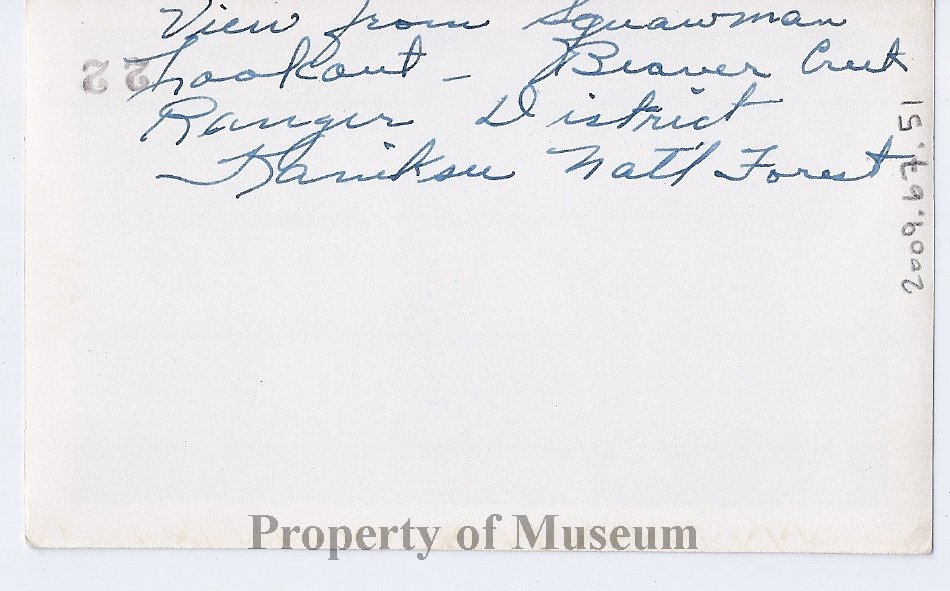 View from Squawman
Lookout - Beaver Creek
Ranger District
Kaniksu Nat'l Forest
22
2009.67.151
Property of Museum